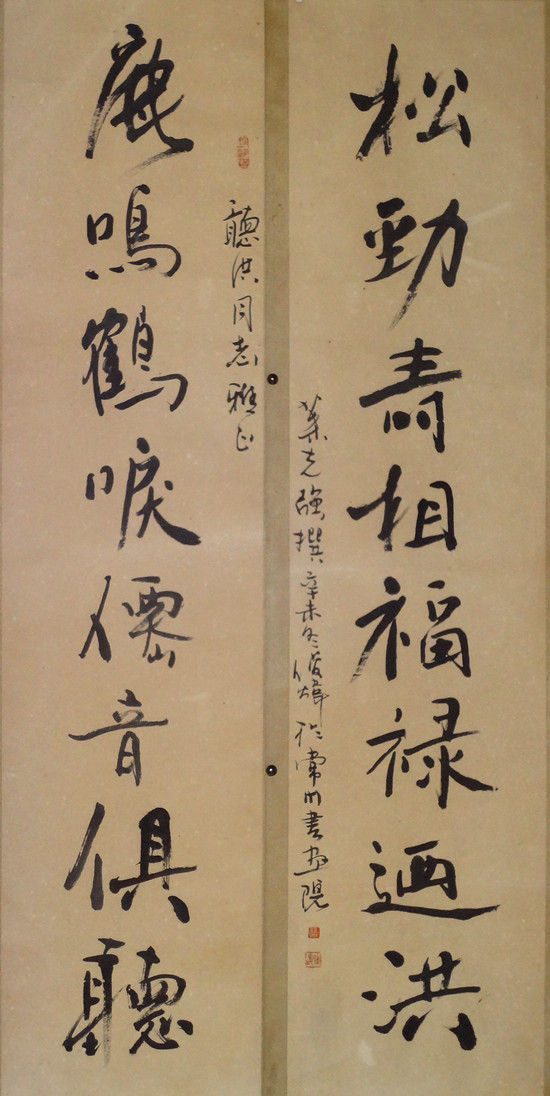 松勁寿相福禄迺洪
葉克強撰辛未冬煒於常州書画院
聽洪同志雅正
鹿鳴鶴唳僊音俱聽